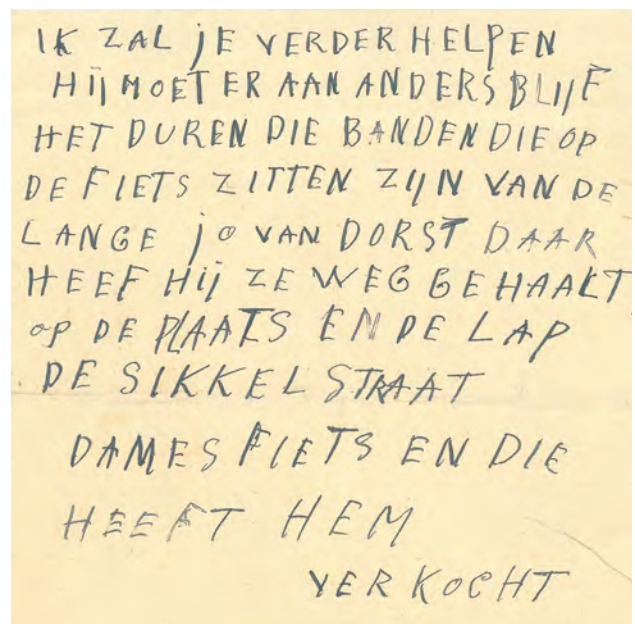 IK ZAL jE VERDER HELPEN
HIj MOET ER AAN ANDERS BLIjF
HET DUREN DIE BANDEN DIE OP
DE FIETS ZITTEN ZIjN VAN DE
LANGE jO VAN DORST DAAR
HEEF HIj ZE WEG GEHAAKT
OP DE PLAATS EN DE LAP
DE SIKKEL STRAAT
DAMES FIETS EN DIE
HEEFT HEM
VERKOCHT